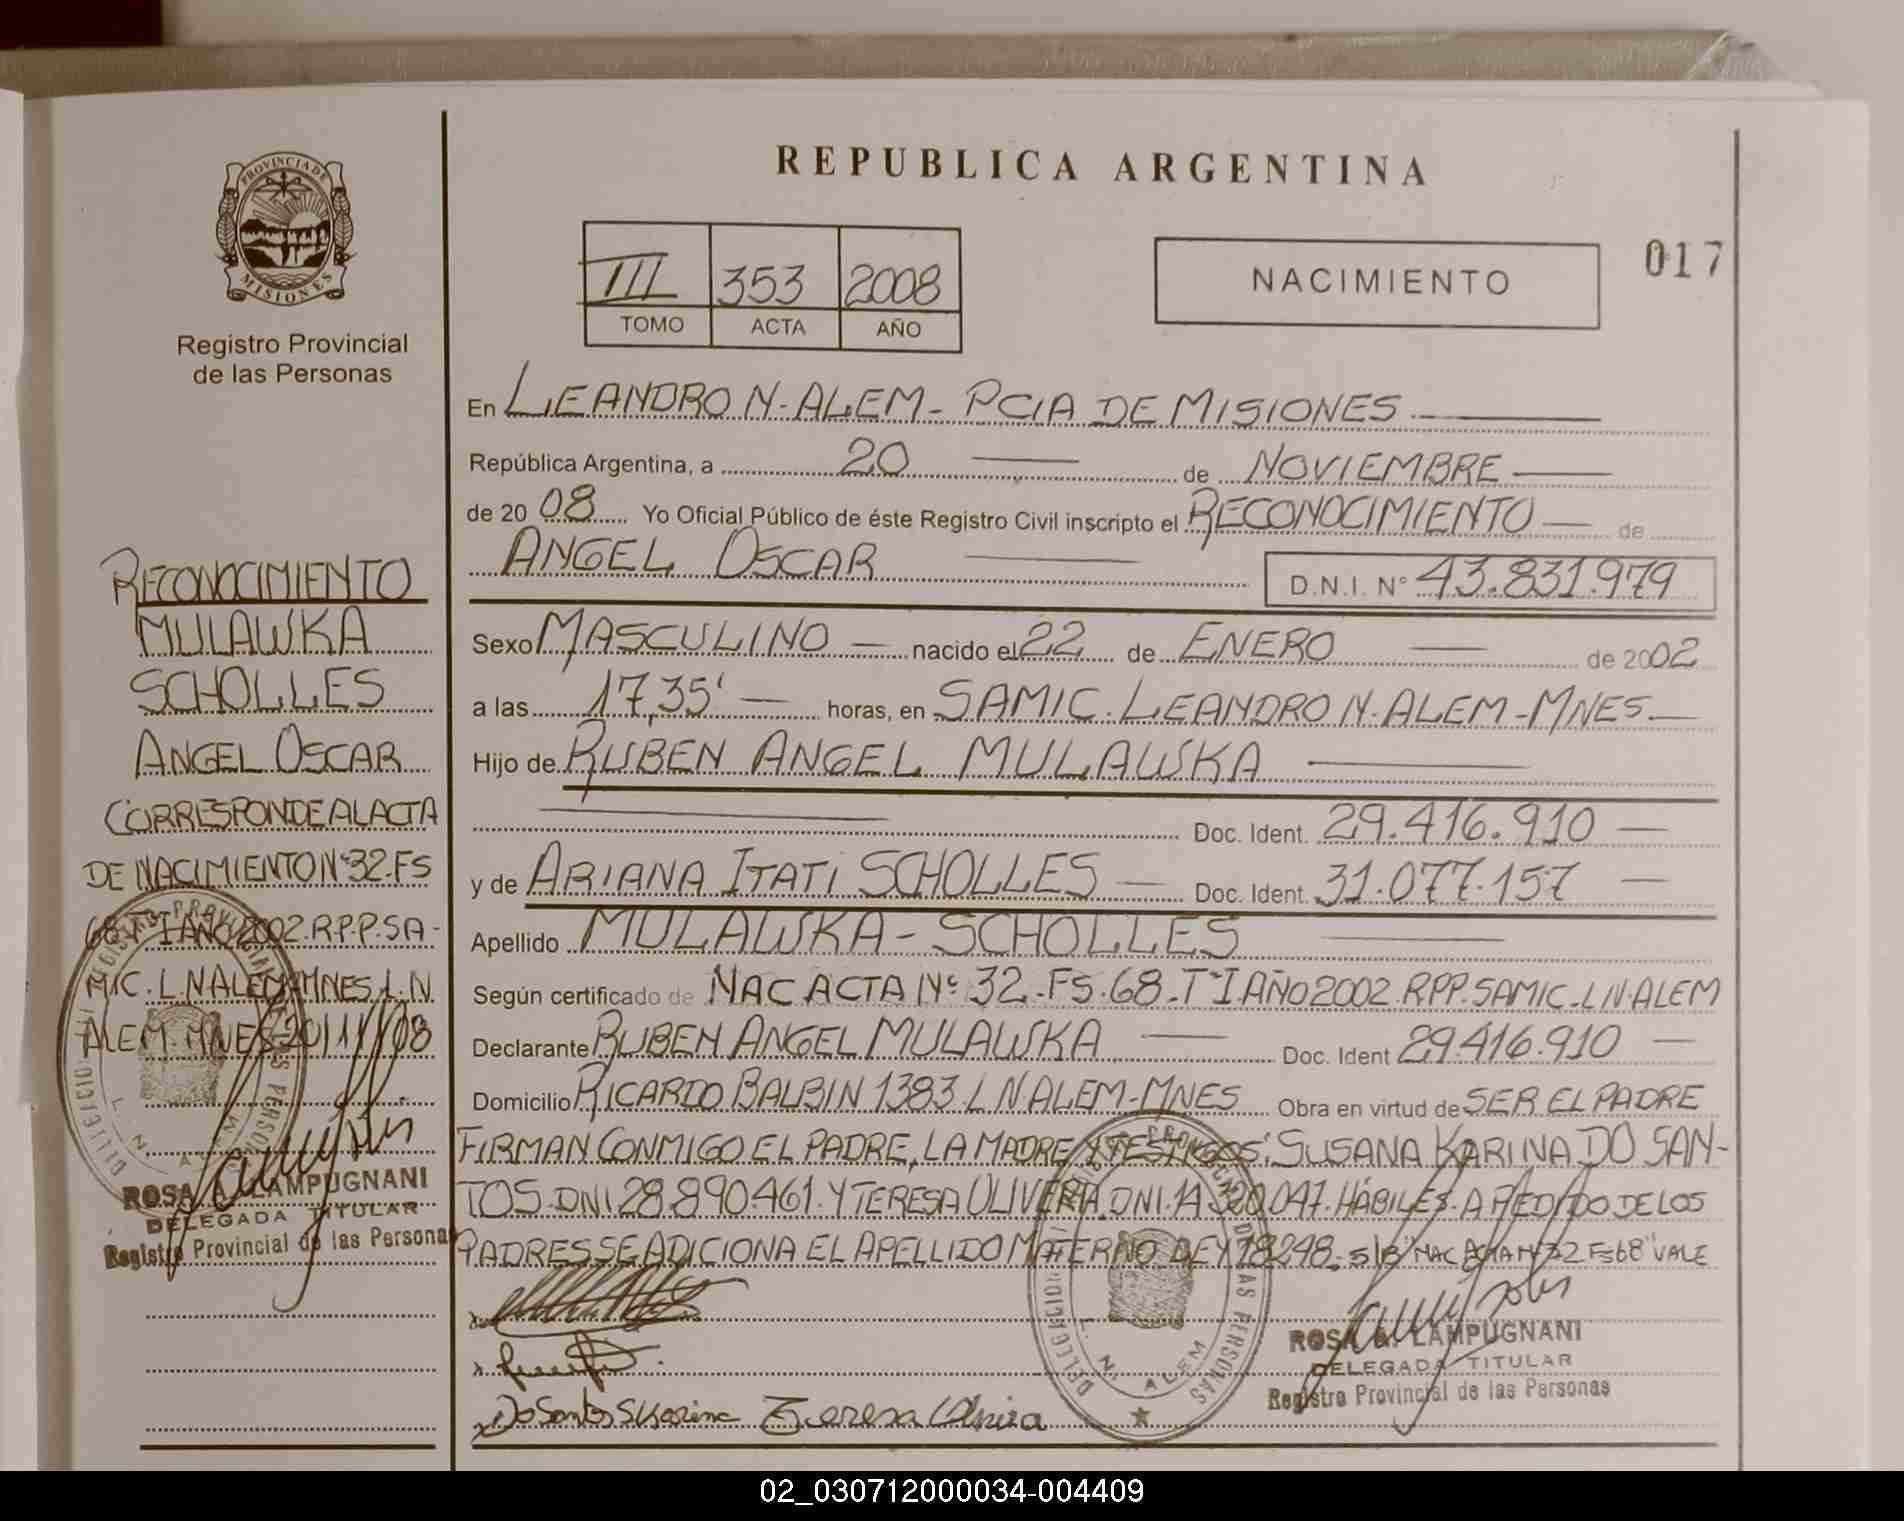 PROVINCIA DE
MISIONES
Registro Provincial
de las Personas
RECONOCIMIENTO
MULAWSKA
SCHOLLES
ANGEL OSCAR
CORRESPONDE AL ACTA
DE NACIMIENTO Nº 32. FS
68. Tº I AÑO 2002. R.P.P. SA-
MIC. L.N ALEM-MNES. L.N.
ALEM. MNES 20/11/08
ROSA A. LAMPUGNANI
DELEGADA TITULAR
Registro Provincial de las Personas
REPUBLICA ARGENTINA
III 353 2008
TOMO ACTA AÑO
NACIMIENTO
017
En LEANDRO N. ALEM - PCIA DE MISIONES
República Argentina, a 20 de NOVIEMBRE
de 2008 Yo Oficial Público de éste Registro Civil inscripto el RECONOCIMIENTO de
ANGEL OSCAR D.N.I. Nº 43.831.979
Sexo MASCULINO nacido el 22 de ENERO de 2002
a las 17,35' horas, en SAMIC. LEANDRO N. ALEM - MNES
Hijo de RUBEN ANGEL MULAWSKA
Doc. Ident. 29.416.910
y de ARIANA ITATI SCHOLLES Doc. Ident. 31.077.157
Apellido MULAWSKA - SCHOLLES
Según certificado de NAC ACTA Nº 32. FS. 68. Tº I. AÑO 2002. RPP. SAMIC. L N. ALEM
Declarante RUBEN ANGEL MULAWSKA Doc. Ident 29.416.910
Domicilio RICARDO BALBIN 1383. L N ALEM-MNES Obra en virtud de SER EL PADRE
FIRMAN CONMIGO EL PADRE, LA MADRE Y TESTIGOS: SUSANA KARINA DO SAN-
TOS. DNI 28.890.461. Y TERESA OLIVERA. DNI. 14.320.047. HÁBILES. A PEDIDO DE LOS
PADRES SE ADICIONA EL APELLIDO MATERNO. LEY 18248. S/B "NAC ACTA Nº 32 Fs 68" VALE
Do Santos S Karina Teresa Olivera
DELEGACION L. N. ALEM
ROSA A. LAMPUGNANI
DELEGADA TITULAR
Registro Provincial de las Personas
02_030712000034-004409